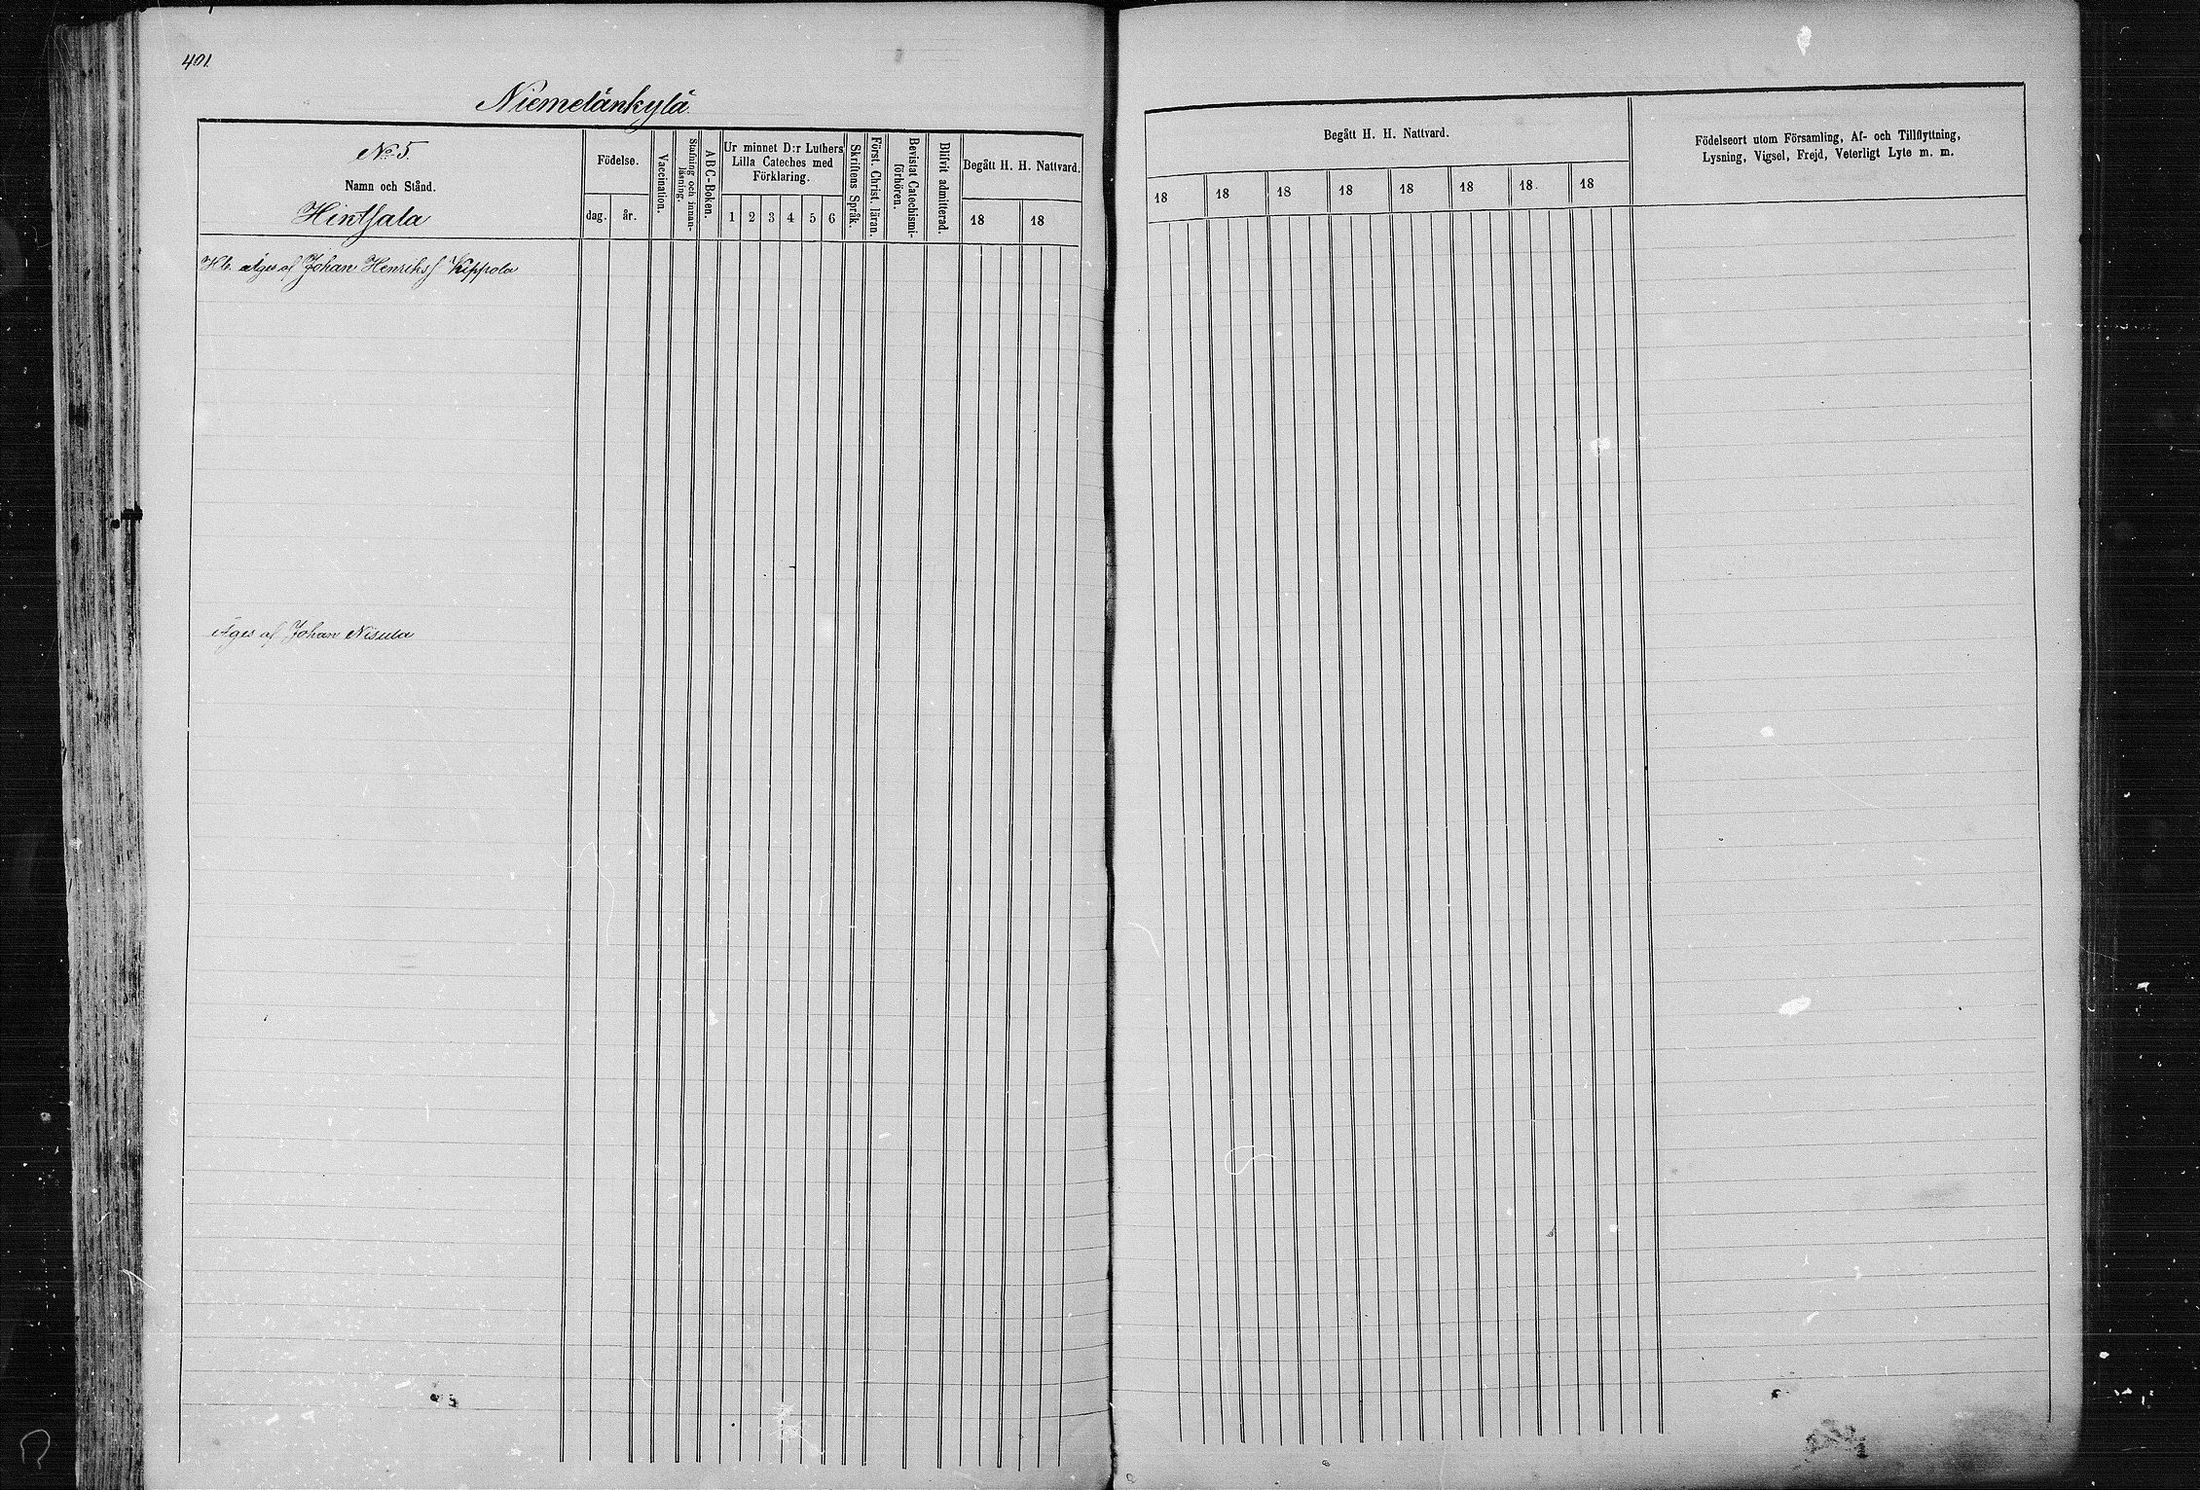 401
Niemelänkylä
No 5.
Namn och Stånd.
Hintsala
Födelse.
dag. år.
Vaccination.
Stafning och innan-
läsning.
A B C-Boken.
Ur minnet D:r Luthers
Lilla Cateches med
Förklaring.
1 2 3 4 5 6
Skriftens Språk.
Först. Christ. läran.
Bevistat Catechismi-
förhören.
Blifvit admitterad.
Begått H. H. Nattvard.
18 18
Äges af Johan Henrikss Kippola
Äges af Johan Nisula
Begått H. H. Nattvard.
18 18 18 18 18 18 18. 18
Födelseort utom Församling, Af- och Tillflyttning,
Lysning, Vigsel, Frejd, Veterligt Lyte m. m.